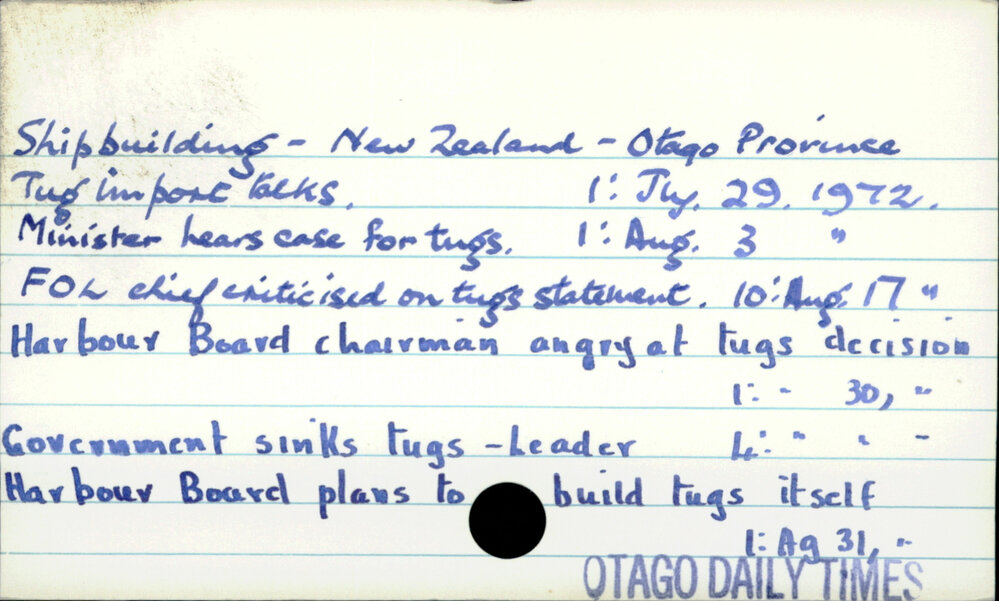 Shipbuilding - New Zealand - Otago Province
Tug import talks. 1: Jly. 29. 1972.
Minister hears case for tugs. 1: Aug. 3 "
FOL chief criticised on tugs statement. 10: Aug. 17 "
Harbour Board chairman angry at tugs decision
1: " 30, "
Government sinks tugs - Leader 4: " " "
Harbour Board plans to build tugs itself
1: Ag 31, "
OTAGO DAILY TIMES